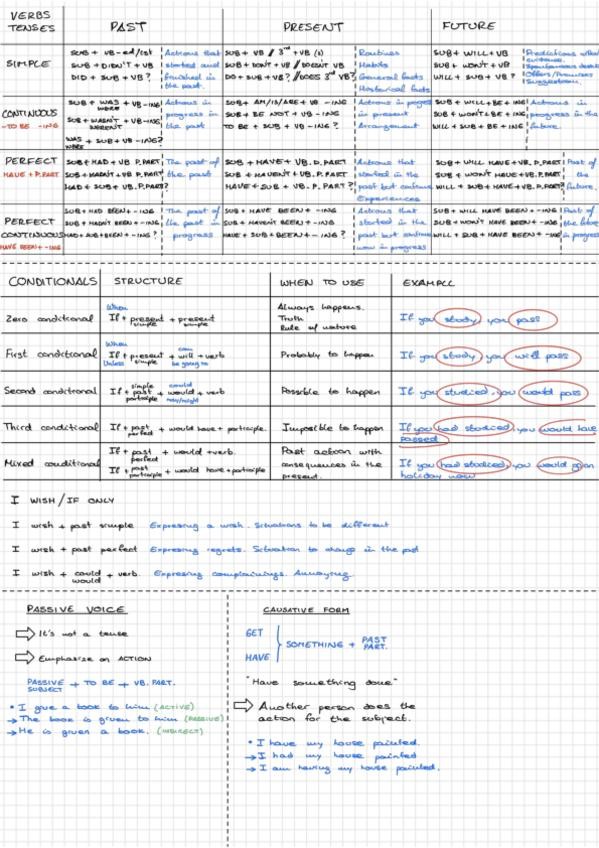 VERBS TENSES | PAST | PRESENT | FUTURE
SIMPLE
SUB + VB-ed/1st
SUB + DIDN'T + VB
DID + SUB + VB?
Actions that started and finished in the past.
SUB + VB // 3rd + VB (s)
SUB + DON'T + VB // DOESN'T VB
DO + SUB + VB? // DOES 3rd VB?
Routines
Habits
General facts
Historical facts
SUB + WILL + VB
SUB + WON'T + VB
WILL + SUB + VB?
Predictions
evidence.
Spontaneous
Offers/Promises
Suggestion.
CONTINUOUS
-TO BE -ING
SUB + WAS/WERE + VB-ING
SUB + WASN'T/WEREN'T + VB-ING
WAS/WERE + SUB + VB-ING?
Actions in progress in the past
SUB + AM/IS/ARE + VB-ING
SUB + BE NOT + VB-ING
TO BE + SUB + VB-ING?
Actions in progress in present
Arrangement
SUB + WILL + BE + ING
SUB + WON'T + BE + ING
WILL + SUB + BE + ING?
Actions in progress in the future.
PERFECT
HAVE + P.PART
SUB + HAD + VB. P.PART
SUB + HADN'T + VB. P.PART
HAD + SUB + VB. P.PART?
The past of the past
SUB + HAVE + VB. P. PART
SUB + HAVEN'T + VB. P. PART
HAVE + SUB + VB. P. PART?
Actions that started in the past but continue
Experiences
SUB + WILL HAVE + VB. P.PART
SUB + WON'T HAVE + VB. P.PART
WILL + SUB + HAVE + VB. P.PART?
Past of the future.
PERFECT CONTINUOUS
HAVE BEEN + -ING
SUB + HAD BEEN + -ING
SUB + HADN'T BEEN + -ING
HAD + SUB + BEEN + -ING?
The past of the past in progress
SUB + HAVE BEEN + -ING
SUB + HAVEN'T BEEN + -ING
HAVE + SUB + BEEN + -ING?
Actions that started in the past but continue now in progress
SUB + WILL HAVE BEEN + -ING
SUB + WON'T HAVE BEEN + -ING
WILL + SUB + HAVE BEEN + -ING?
Past of the future in progress
CONDITIONALS | STRUCTURE | WHEN TO USE | EXAMPLE
Zero conditional
When
If + present simple + present simple
Always happens.
Truth
Rule of nature
If you study, you pass
First conditional
When
can
If + present simple + will + verb
Unless
be going to
Probably to happen
If you study you will pass
Second conditional
simple could
If + past + would + verb
participle may/might
Possible to happen
If you studied, you would pass
Third conditional
If + past perfect + would have + participle.
Impossible to happen
If you had studied, you would have passed
Mixed conditional
If + past perfect + would + verb.
If + past participle + would have + participle
Past action with consequences in the present.
If you had studied, you would go on holiday now
I WISH / IF ONLY
I wish + past simple Expresing a wish. Situations to be different
I wish + past perfect Expresing regrets. Situation to change in the past
I wish + could/would + verb. Expresing complainings. Annoying.
PASSIVE VOICE
⇨ It's not a tense
⇨ Emphasize on ACTION
PASSIVE SUBJECT + TO BE + VB. PART.
• I give a book to him (ACTIVE)
→ The book is given to him (PASSIVE)
→ He is given a book. (INDIRECT)
CAUSATIVE FORM
GET
HAVE
SOMETHING + PAST PART.
"Have something done"
⇨ Another person does the action for the subject.
• I have my house painted.
→ I had my house painted
→ I am having my house painted.